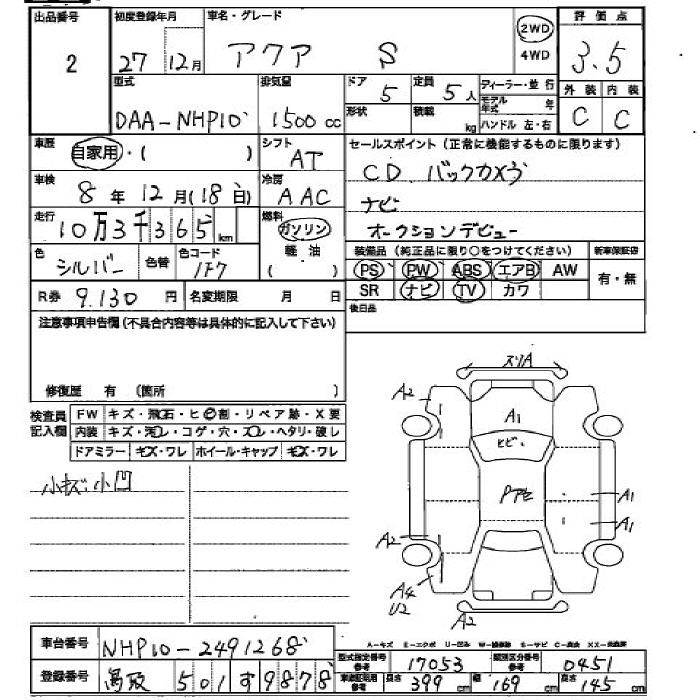 出品番号 初度登録年月 車名・グレード 評価点
2 27 12月 アクア S 2WD 4WD 3.5
型式 排気量 ドア 5 定員 5人 ディーラー・並行 外装 内装
DAA-NHP10 1500cc 形状 積載 kg モデル年式 年 ハンドル 左・右 C C
車歴 自家用・( ) シフト AT セールスポイント(正常に機能するものに限ります)
車検 8年12月(18日) 冷房 AAC CD バックカメラ
ナビ
走行 10万3千365km 燃料 ガソリン オークションデビュー
軽油
( )
色 シルバー 色替 色コード 1F7 装備品(純正品に限り○をつけてください) 新車保証書
PS PW ABS エアB AW 有・無
R券 9.130円 名変期限 月 日 SR ナビ TV カワ
注意事項申告欄(不具合内容等は具体的に記入して下さい) 後日品
修復歴 有 (箇所 )
検査員記入欄 FW キズ・飛石・ヒビ割・リペア跡・X要
内装 キズ・汚レ・コゲ・穴・スレ・ヘタリ・破レ
ドアミラー キズ・ワレ ホイール・キャップ キズ・ワレ
小キズ 小凹
スリA
A2
A1
ヒビ
A1
A1
A2
A4
U2
A2
車台番号 NHP10-2491268
A-キズ E-エクボ U-凹み
型式指定番号 参考 17053 類別区分番号 参考 0451
登録番号 鳥取 501 す 9878 車庫証明用 参考 長さ 399cm 幅 169cm 高さ 145cm